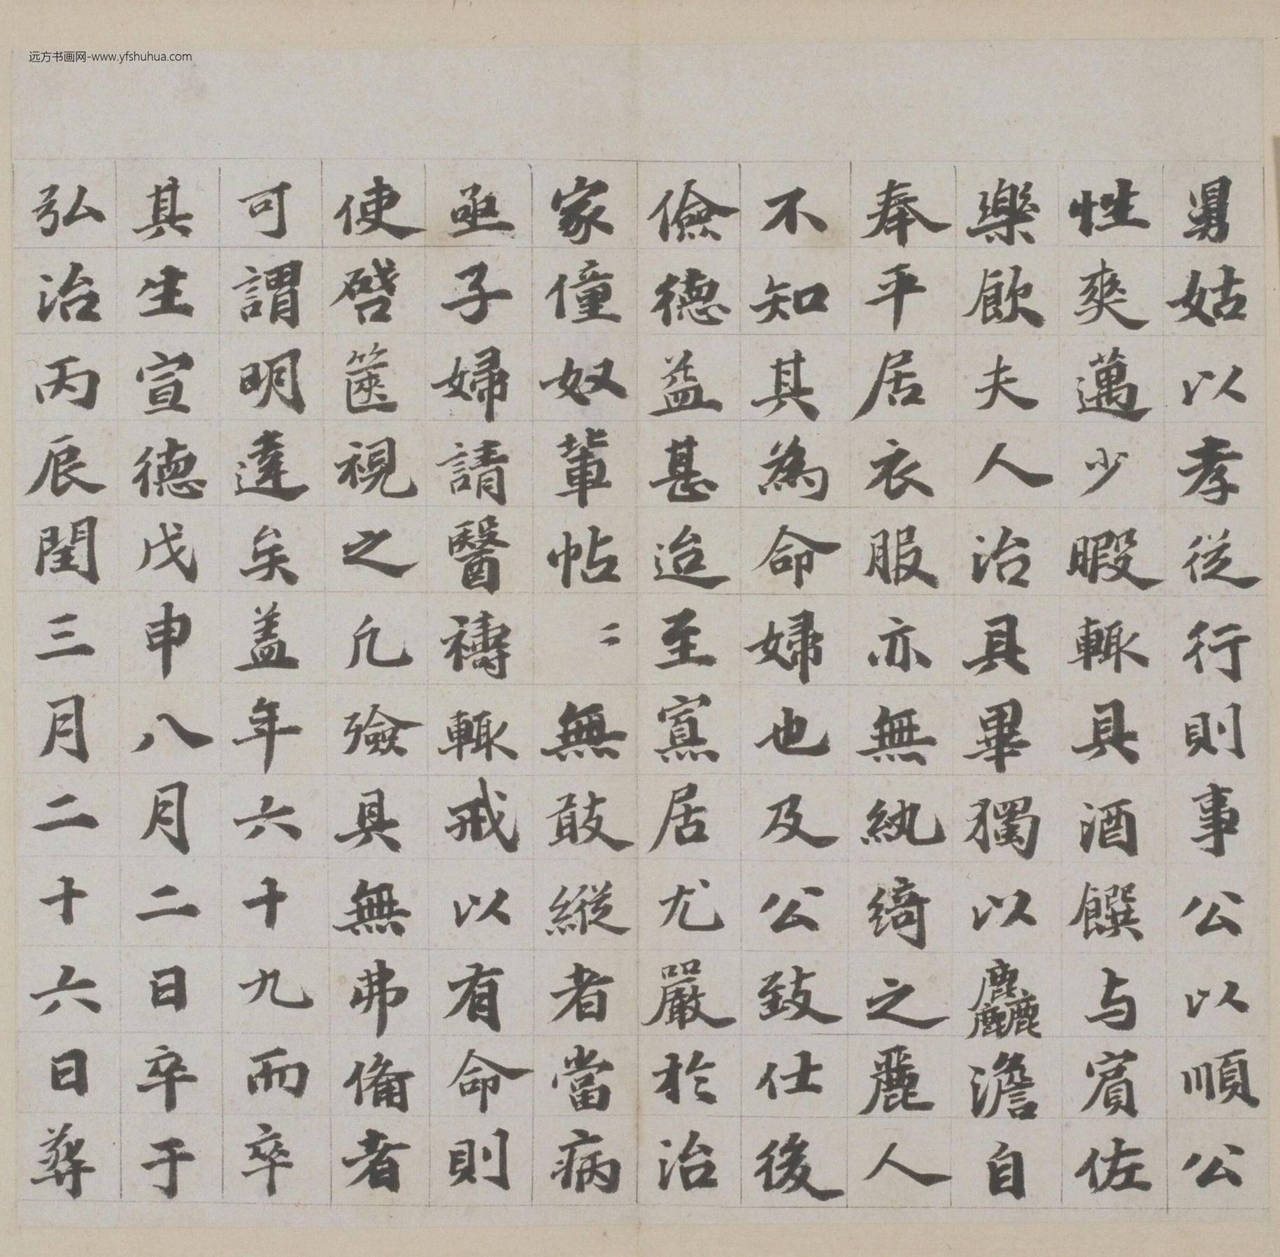 远方书画网-www.yfshuhua.com
舅姑以孝從行則事公以順公
性爽邁少暇輙具酒饌与賓佐
樂飲夫人治具畢獨以麤澹自
奉平居衣服亦無紈綺之麗人
不知其為命婦也及公致仕後
儉德益甚迨至寡居尤嚴於治
家僮奴輩帖〻無敢縱者當病
亟子婦請醫禱輙戒以有命則
使啓篋視之凢殮具無弗備者
可謂明達矣盖年六十九而卒
其生宣德戊申八月二日卒于
弘治丙辰閏三月二十六日葬